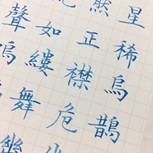 星稀烏鵲
然正襟危
如縷舞幽
聲嗚